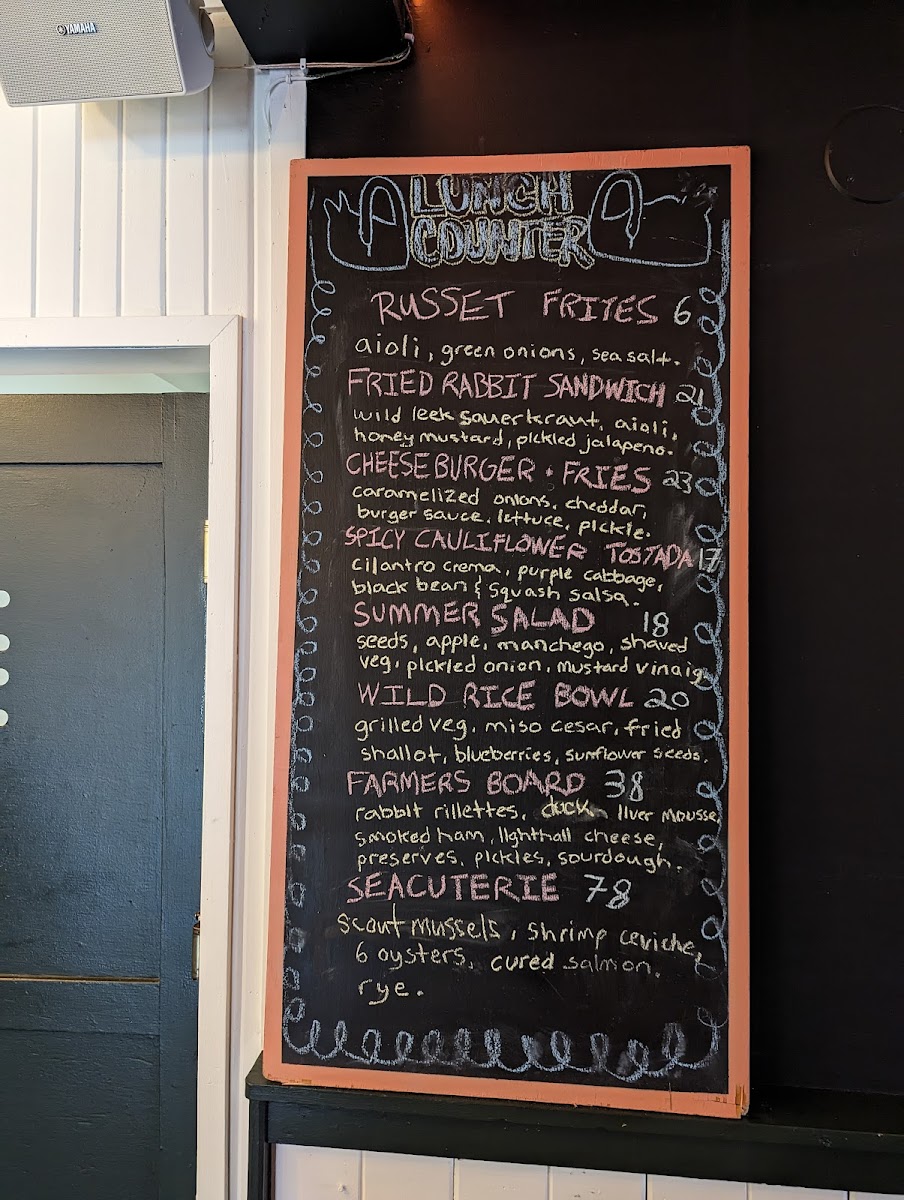 YAMAHA
LUNCH
COUNTER
RUSSET FRITES 6
aioli, green onions, sea salt.
FRIED RABBIT SANDWICH 21
wild leek sauerkraut, aioli,
honey mustard, pickled jalapeno.
CHEESEBURGER · FRIES 23
caramelized onions, cheddar,
burger sauce, lettuce, pickle.
SPICY CAULIFLOWER TOSTADA 17
cilantro crema, purple cabbage,
black bean & squash salsa.
SUMMER SALAD 18
seeds, apple, manchego, shaved
veg, pickled onion, mustard vinaig
WILD RICE BOWL 20
grilled veg, miso cesar, fried
shallot, blueberries, sunflower seeds.
FARMERS BOARD 38
rabbit rillettes, duck liver mousse,
smoked ham, lighthall cheese,
preserves, pickles, sourdough.
SEACUTERIE 78
scout mussels, shrimp ceviche,
6 oysters, cured salmon.
rye.